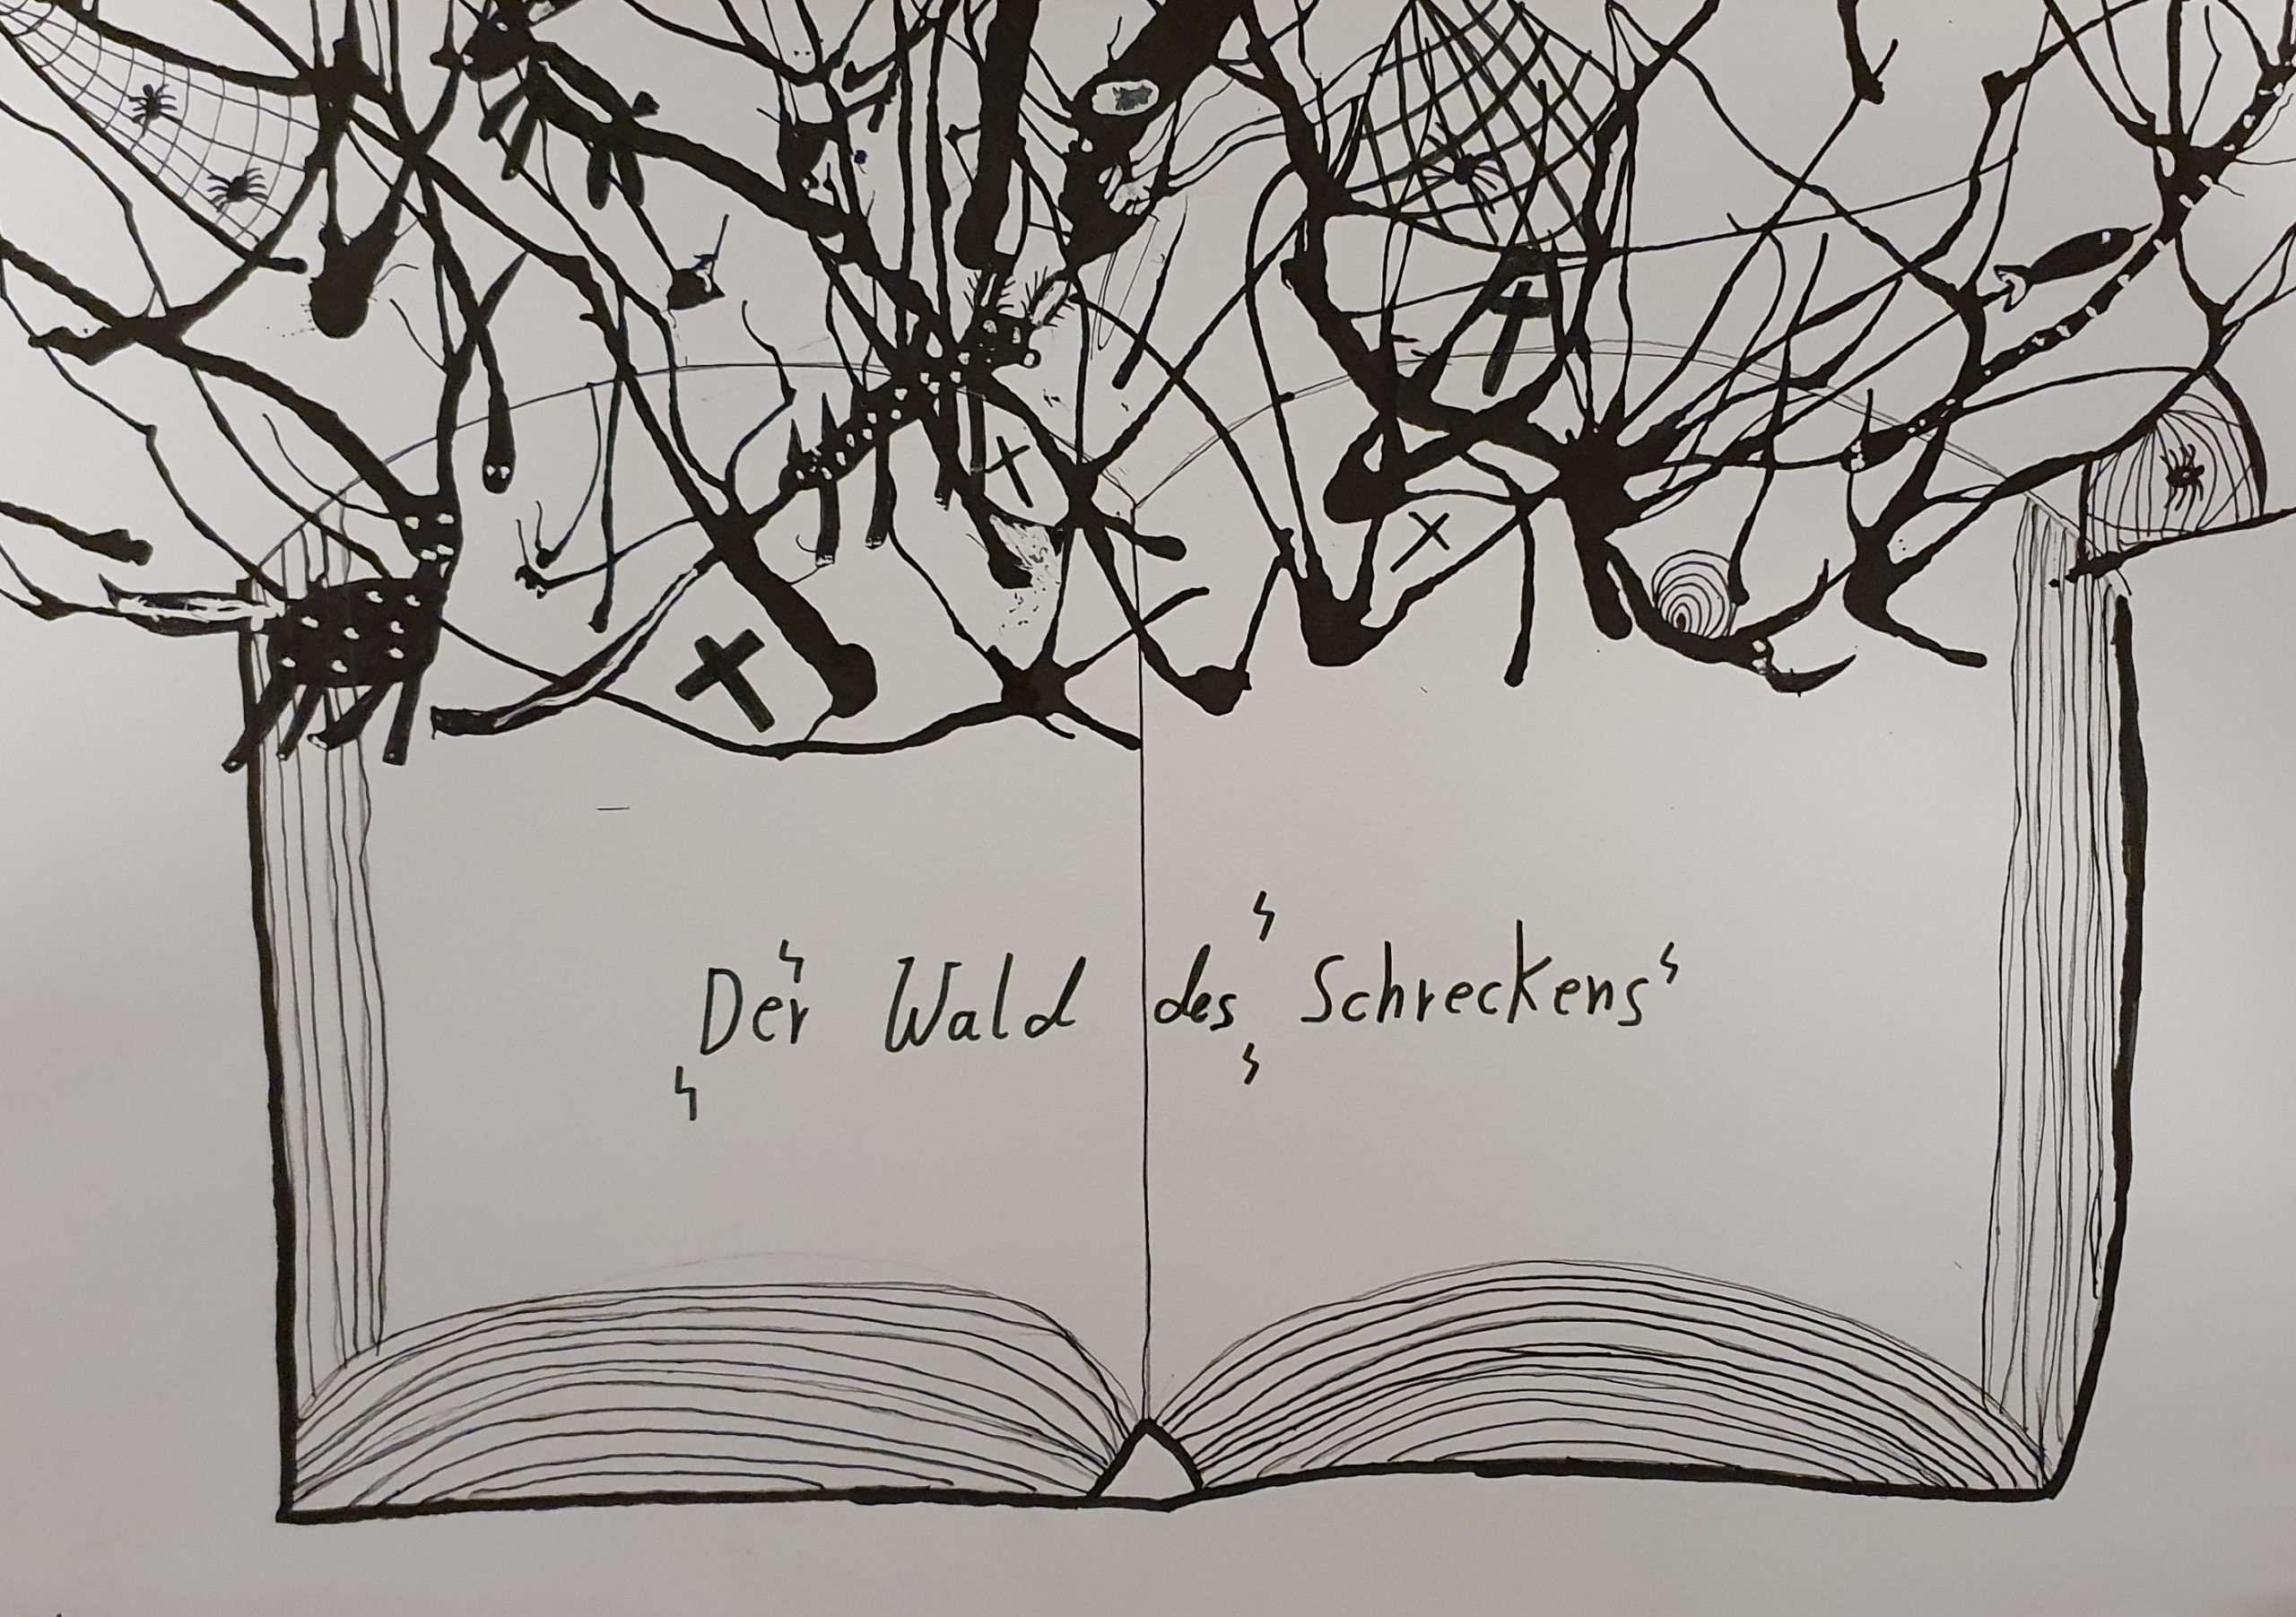 Der Wald des Schreckens